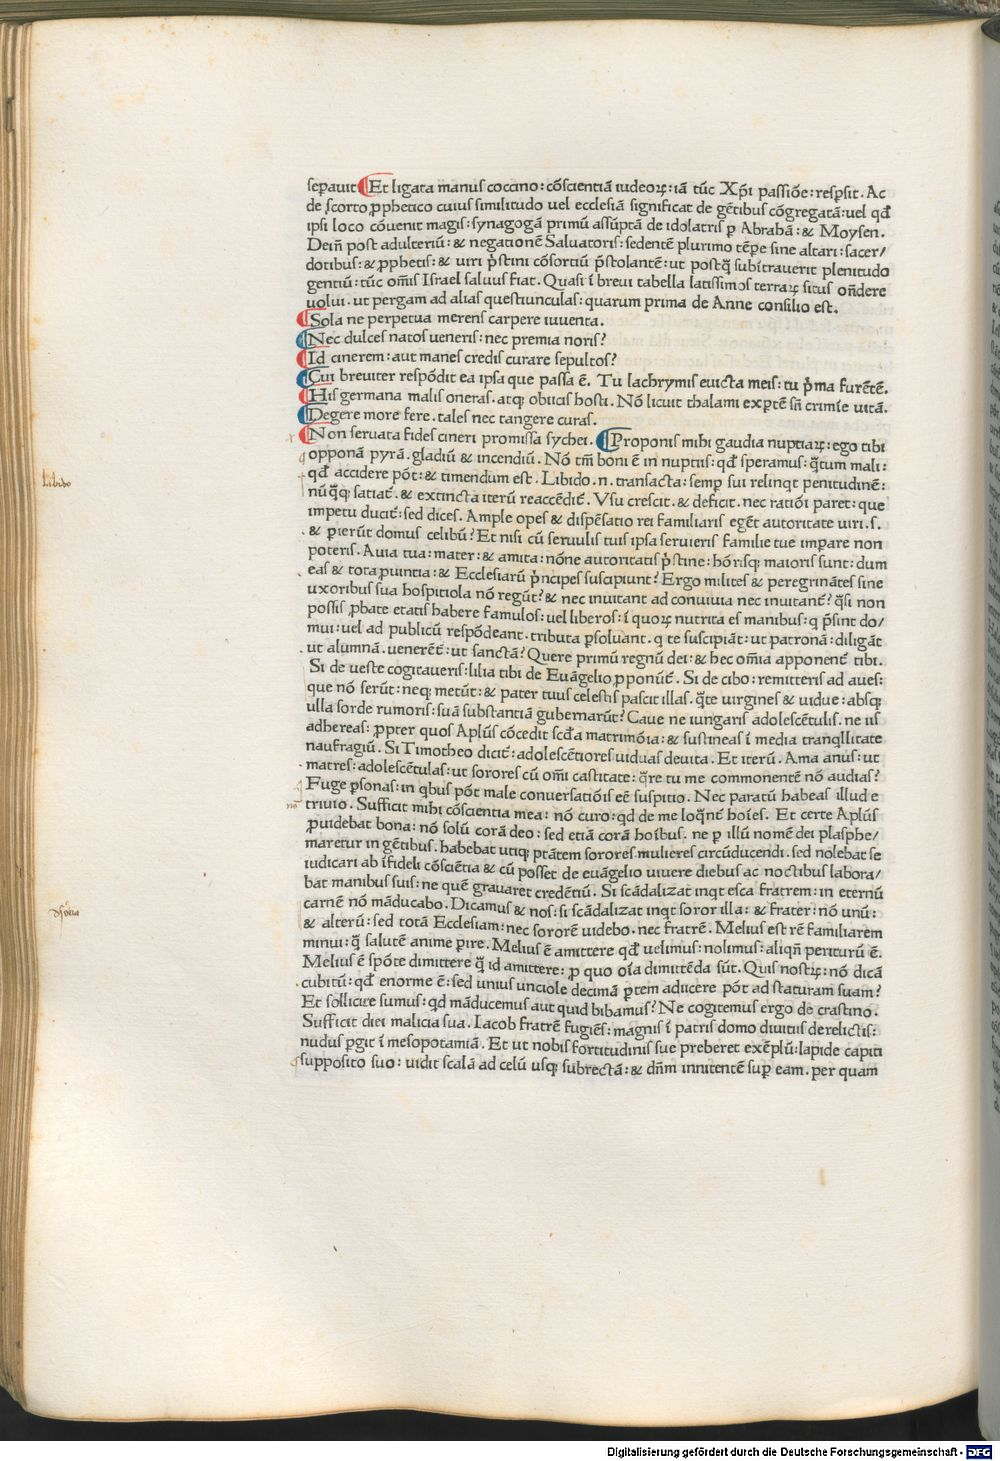 seꝑauit Et ligata manus coccino: cōscientiā iudeoꝝ: iā tūc Xp̄i passiōe: resꝑsit. Ac
de scorto ꝓphetico cuius similitudo uel ecclesiā significat de gētibus cōgregatā: uel qd̄
ipsi loco cōuenit magis: synagogā primū assūptā de idolatris ꝑ Abrahā: & Moysen.
Dein̄ post adulteriū: & negationē Saluatoris: sedentē plurimo tēꝑe sine altari: sacer/
dotibus: & ꝓphetis: & uiri p̄stini cōsortiū p̄stolantē: ut postq̄ subītrauerit plenitudo
gentiū: tūc om̄is Israel saluus fiat. Quasi ī breui tabella latissimos terraꝝ situs on̄dere
uolui. ut pergam ad alias questiunculas: quarum prima de Anne consilio est.
Sola ne perpetua merens carpere iuuenta.
Nec dulces natos ueneris: nec premia noris?
Id cinerem: aut manes credis curare sepultos?
Cui breuiter respōdit ea ipsa que passa ē. Tu lachrymis euicta meis: tu p̄ma furētē.
His germana malis oneras. atqꝫ obiicis hosti. Nō licuit thalami exꝑtē sn̄ crimīe uitā.
Degere more fere. tales nec tangere curas.
Non seruata fides cineri promissa sychei. Proponis mihi gaudia nuptiaꝝ: ego tibi
opponā pyrā. gladiū & incendiū. Nō tm̄ boni ē in nuptiis: qd̄ speramus: q̄tum mali:
qd̄ accidere pōt: & timendum est. Libido .n. transacta: semꝑ sui relinqt penitudinē:
nūq̄qꝫ satiat̄. & extincta iterū reaccēdit̄. Vsu crescit. & deficit. nec ratiōi paret: que
impetu ducit̄: sed dices. Ample opes & dispēsatio rei familiaris eget̄ autoritate uiri. s.
& ꝑierūt domus celibū? Et nisi cū seruulis tuis ipsa seruieris familie tue imꝑare non
poteris. Auia tua: mater: & amita: nōne autoritatis p̄stine: hōrisqꝫ maioris sunt: dum
eas & tota ꝓuintia: & Ecclesiarū p̄ncipes suscipiunt? Ergo milites & peregrinātes sine
uxoribus sua hospitiola nō regūt? & nec inuitant ad conuiuia nec inuitant̄? q̄si non
possis ꝓbate etatis habere famulos: uel liberos: ī quoꝝ nutrita es manibus: q p̄sint do/
mui: uel ad publicū respōdeant. tributa ꝑsoluant. q te suscipiāt: ut patronā: diligāt
ut alumnā. uenerēt̄: ut sanctā? Quere primū regnū dei: & hec om̄ia apponent̄ tibi.
Si de ueste cogitaueris: lilia tibi de Euāgelio ꝓponūt̄. Si de cibo: remitteris ad aues:
que nō serūt: neqꝫ metūt: & pater tuus celestis pascit illas. q̄te uirgines & uidue: absqꝫ
ulla sorde rumoris: suā substantiā gubernarūt? Caue ne iungaris adolescētulis. ne iis
adhereas: ꝓpter quos Apl̄us cōcedit scd̄a matrimōia: & sustineas ī media tranqllitate
naufragiū. Si Timotheo dicit̄: adolescētiores uiduas deuita. Et iterū. Ama anus: ut
matres: adolescētulas: ut sorores cū om̄i castitate: q̄re tu me commonentē nō audias?
Fuge ꝑsonas: in qbus pōt male conuersatiōis eē suspitio. Nec paratū habeas illud e
triuio. Sufficit mihi cōscientia mea: nō curo: qd de me loqnt̄ hoīes. Et certe Apl̄us
ꝓuidebat bona: nō solū corā deo: sed etiā corā hoībus. ne ꝑ illū nomē dei plasphe/
maretur in gētibus. habebat utiqꝫ ptātem sorores mulieres circūducendi. sed nolebat se
iudicari ab īfideli cōsciētia & cū posset de euāgelio uiuere diebus ac noctibus labora/
bat manibus suis: ne quē grauaret credētiū. Si scādalizat inqt esca fratrem: in eternū
carnē nō māducabo. Dicamus & nos: si scādalizat inqt soror illa: & frater: nō unū:
& alterū: sed totā Ecclesiam: nec sororē uidebo. nec fratrē. Melius est rē familiarem
minui: q̄ salutē anime ꝑire. Melius ē amittere qd̄ uelimus: nolimus: aliqn̄ periturū ē.
Melius ē spōte dimittere q̄ id amittere: ꝓ quo oīa dimittēda sūt. Quis nostꝝ: nō dicā
cubitū: qd̄ enorme ē: sed unius unciole decimā ꝑtem adiicere pōt ad staturam suam?
Et solliciti sumus: qd māducemus aut quid bibamus? Ne cogitemus ergo de crastino.
Sufficit diei malicia sua. Iacob fratrē fugiēs: magnis ī patris domo diuitiis derelictis:
nudus ꝑgit ī mesopotamiā. Et ut nobis fortitudinis sue preberet exēplū: lapide capiti
supposito suo: uidit scalā ad celū usqꝫ subrectā: & dn̄m innitentē suꝑ eam. per quam
Libido
Digitalisierung gefördert durch die Deutsche Forschungsgemeinschaft - DFG